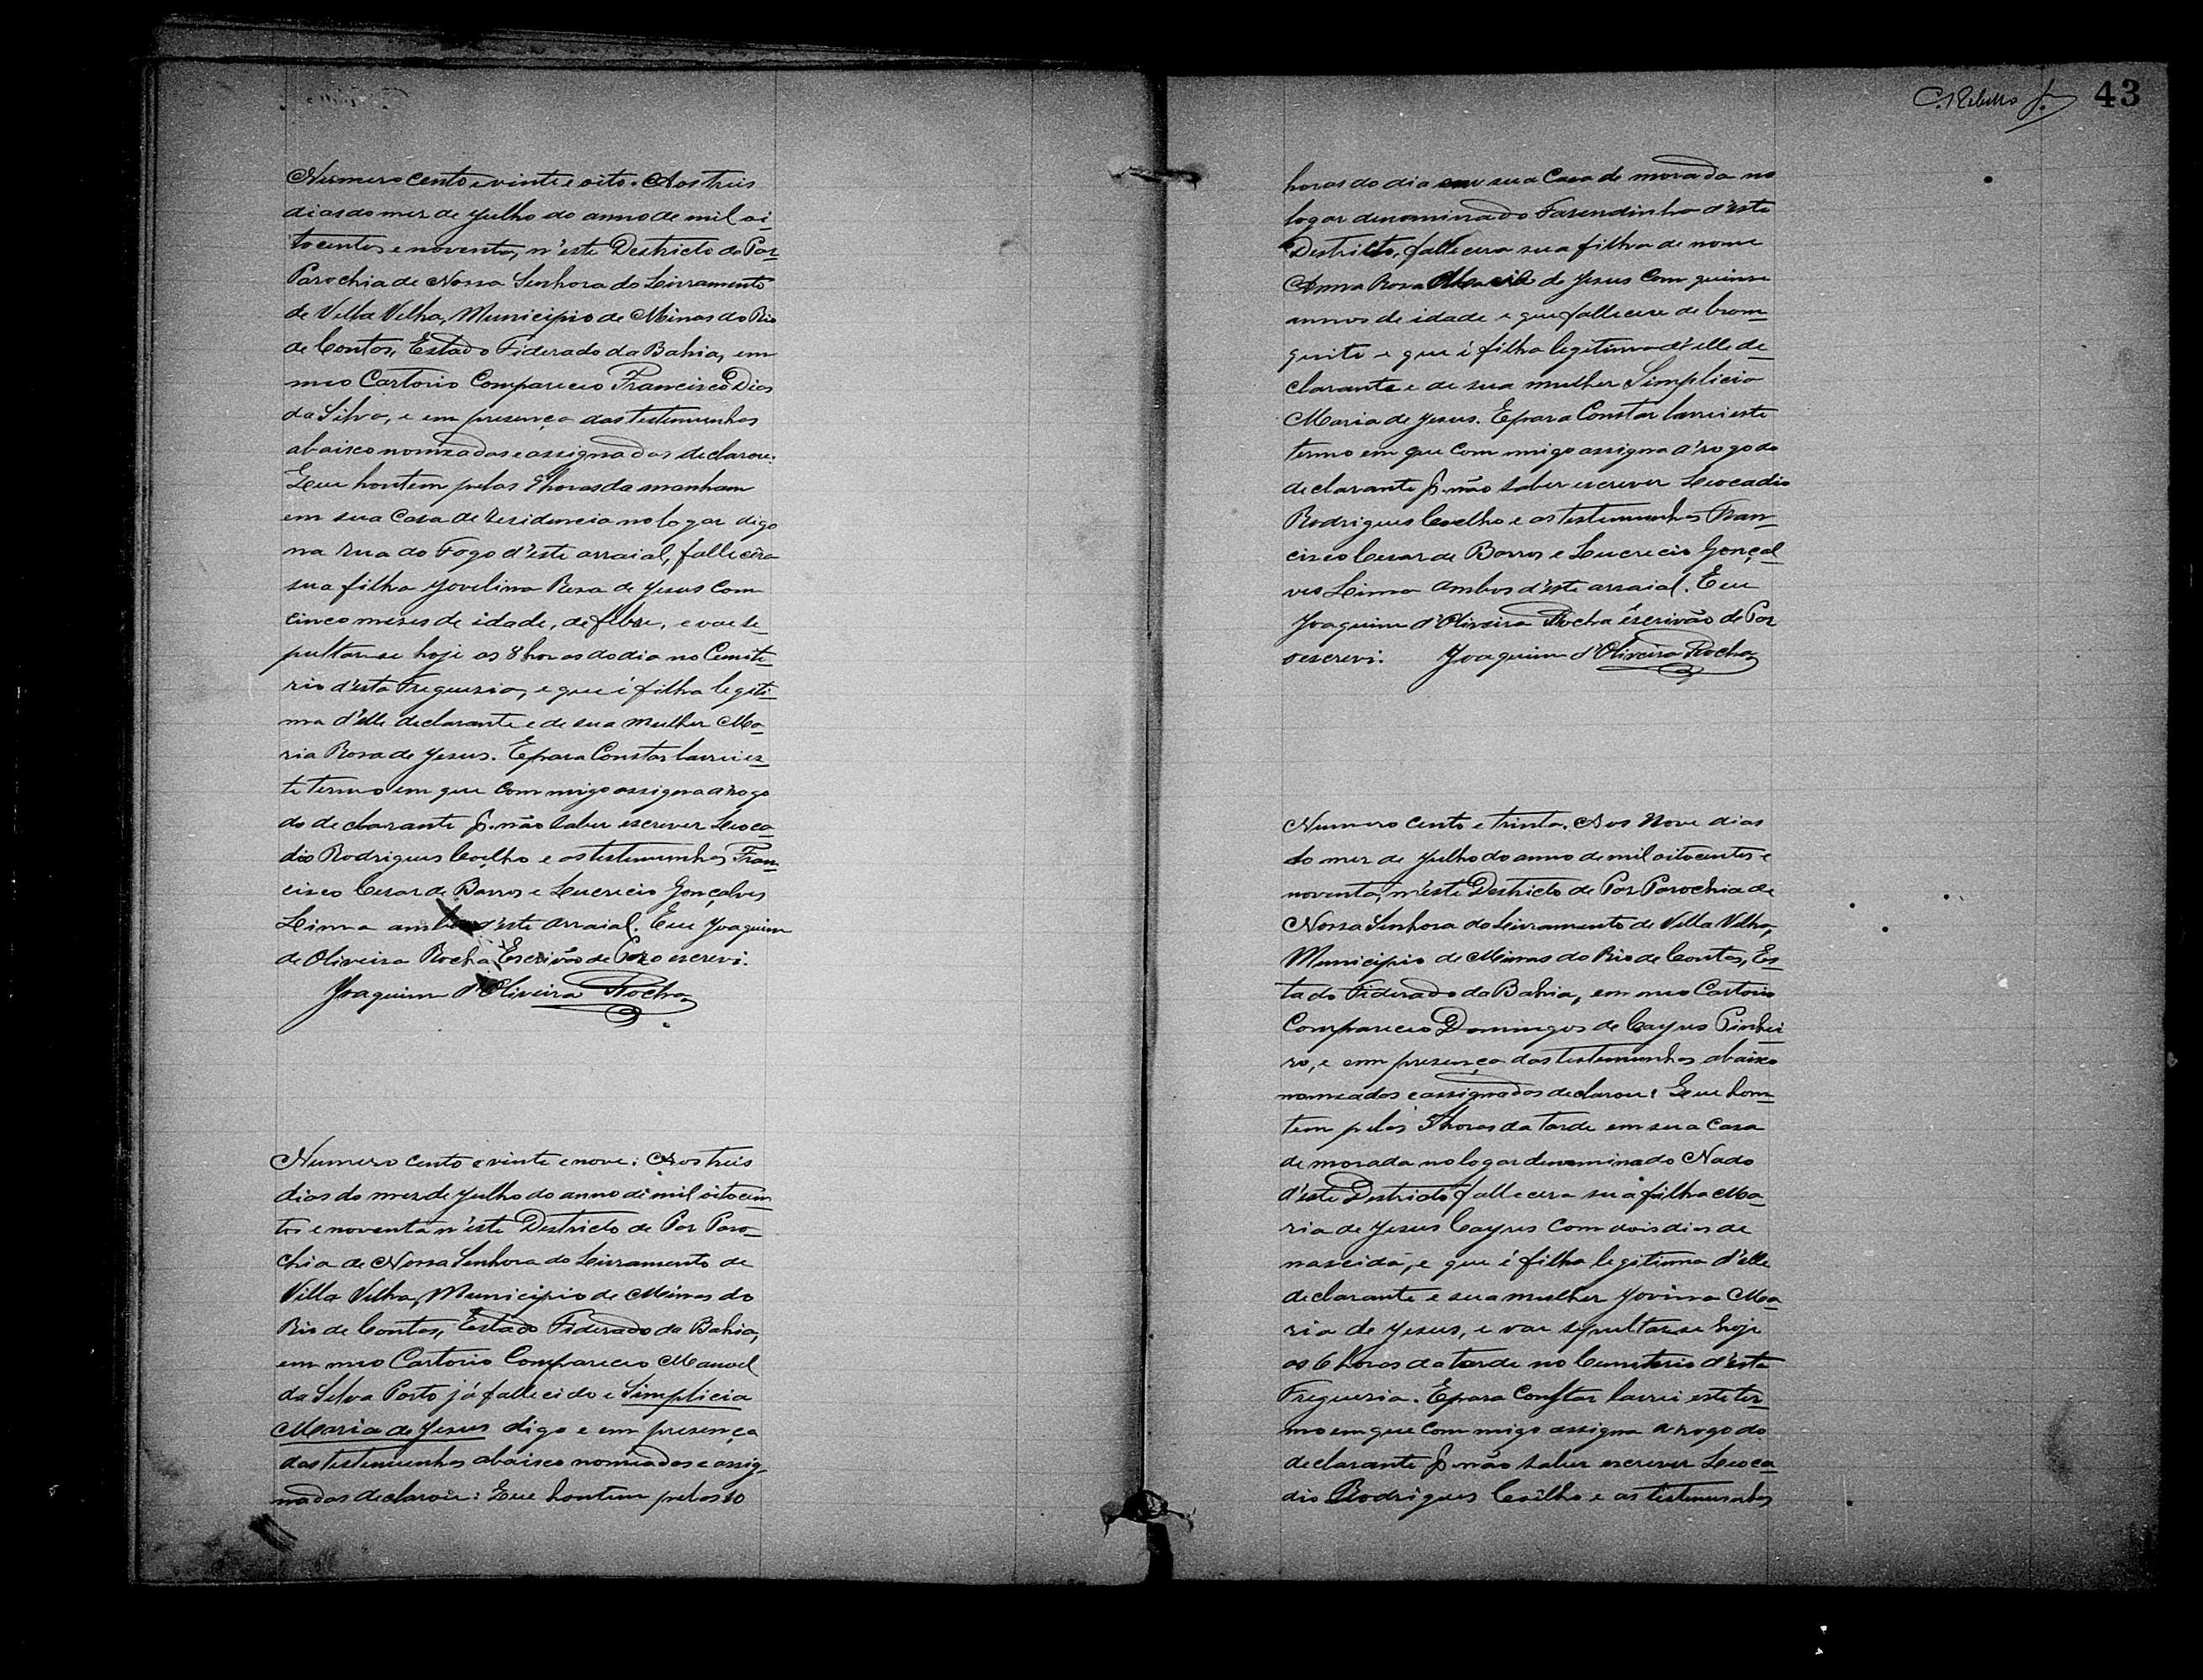 Numero cento e vinte e oito. Aos treis
dias do mez de Julho do anno de mil oi
tocentos e noventa, n'este Destricto de Paz
Parochia de Nossa Senhora do Livramento
de Villa Velha, Municipio de Minas do Rio
de Contas, Estado Fiderado da Bahia, em
meo Cartorio Compareceo Francisco Dias
da Silva, e em presença das testemunhas
abaixo nomeadas e assignadas declarou:
Que hontem pelas 9 horas da manham
em sua Casa de residencia no logar digo
na rua do Fogo d'este arraial, fallecêra
sua filha Jovelina Rosa de Jesus com
cinco mezes de idade, de febre, e vae se
pultar-se hoje as 8 horas do dia no Cemite
rio d'esta Freguezia, e que é filha legiti
ma d'elle declarante e de sua mulher Ma
ria Rosa de Jesus. E para Constar lavrei es
te termo em que Commigo assigna a rogo
do declarante p. não saber escrever Leoca
dio Rodrigues Coelho e as testemunhas Fran
cisco Cesar de Barros e Lucrecio Gonçalves
Lima ambos d'este arraial. Eu Joaquim
de Oliveira Rocha Escrivão de Paz o escrevi.
Joaquim d'Oliveira Rocha
Numero cento e vinte e nove: Aos treis
dias do mez de Julho do anno de mil oitocen
tos e noventa n'este Destricto de Paz Paro
chia de Nossa Senhora do Livramento de
Villa Velha, Municipio de Minas do
Rio de Contas, Estado Fiderado da Bahia,
em meo Cartorio Compareceo Manoel
da Silva Porto já fallecido e Simplicia
Maria de Jesus digo e em presença
das testemunhas abaixo nomeadas e assig
nadas declarou: Que hontem pelas 10
C. Rebello Jr. 43
horas do dia em sua Casa de morada no
logar denominado Fazendinha d'este
Destricto, fallecera sua filha de nome
Anna Rosa Maria de Jesus Com quinse
annos de idade e que fallecera de bron
quite e que é filha legitima d'elle de
clarante e de sua mulher Simplicia
Maria de Jesus. E para Constar lavrei este
termo em que Commigo assigna a rogo do
declarante p. não saber escrever Leocadio
Rodrigues Coelho e as testemunhas Fran
cisco Cesar de Barros e Lucrecio Gonçal
ves Lima ambos d'este arraial. Eu
Joaquim d'Oliveira Rocha escrivão de Paz
o escrevi. Joaquim d'Oliveira Rocha
Numero cento e trinta. Aos Nove dias
do mez de Julho do anno de mil oitocentos e
noventa, n'este Destricto de Paz Parochia de
Nossa Senhora do Livramento de Villa Velha,
Municipio de Minas do Rio de Contas, Es
tado Fiderado da Bahia, em meo Cartorio
Compareceo Domingos de Cayres Pinhei
ro, e em presença das testemunhas abaixo
nomeadas e assignadas declarou: Que hon
tem pelas 5 horas da tarde em sua casa
de morada no logar denominado Nado
d'este Destricto fallecera sua filha Ma
ria de Jesus Cayres Com dois dias de
nascida, e que é filha legitima d'elle
declarante e sua mulher Jovina Ma
ria de Jesus, e vae sepultar-se hoje
as 6 horas da tarde no Cemiterio d'esta
Freguezia. E para Constar lavrei este ter
mo em que Commigo assigna a rogo do
declarante p. não saber escrever Leoca
dio Rodrigues Coêlho e as testemunhas